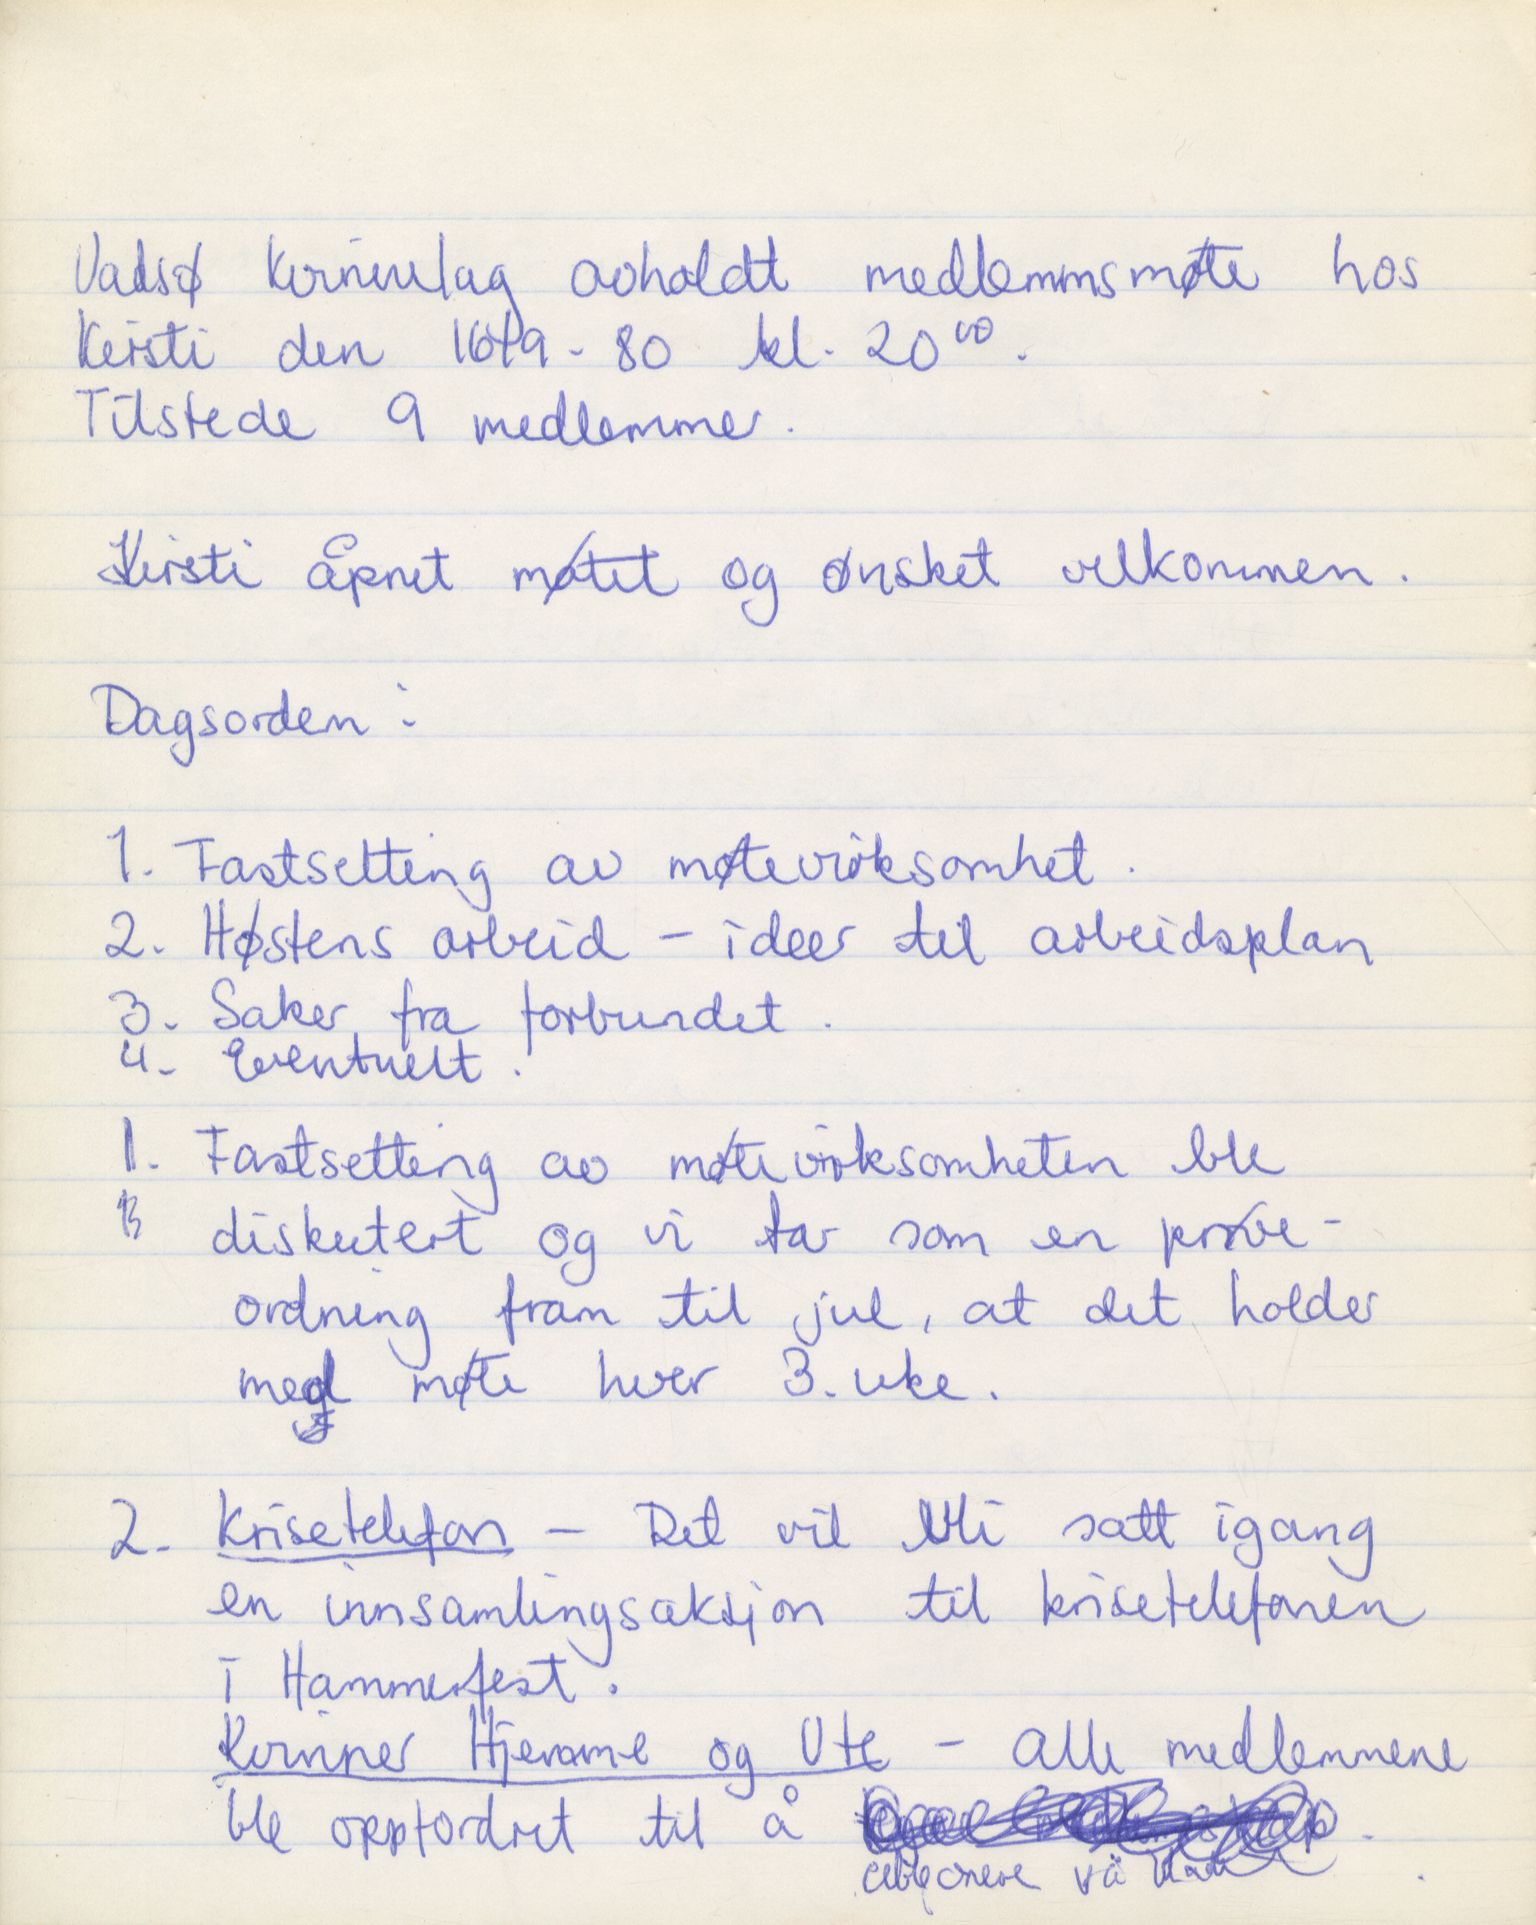 Vadsø Kvinnelag avholdt medlemmsmøte hos
Kirsti den 16/9-80 kl. 20⁰⁰.
Tilstede 9 medlemmer.
Kirsti åpnet møtet og ønsket velkommen.
Dagsorden:
1. Fastsetting av møtevirksomhet.
2. Høstens arbeid – ideer til arbeidsplan
3. Saker fra forbundet.
4. Eventuelt.
1. Fastsetting av møtevirksomheten ble
diskutert og vi tar som en prøve-
ordning fram til jul, at det holder
med møte hver 3. uke.
2. Krisetelefon – Det vil bli satt igang
en innsamlingsaksjon til krisetelefonen
i Hammerfest.
Kvinner Hjemme og Ute – alle medlemmene
ble oppfordret til å
abbonere på